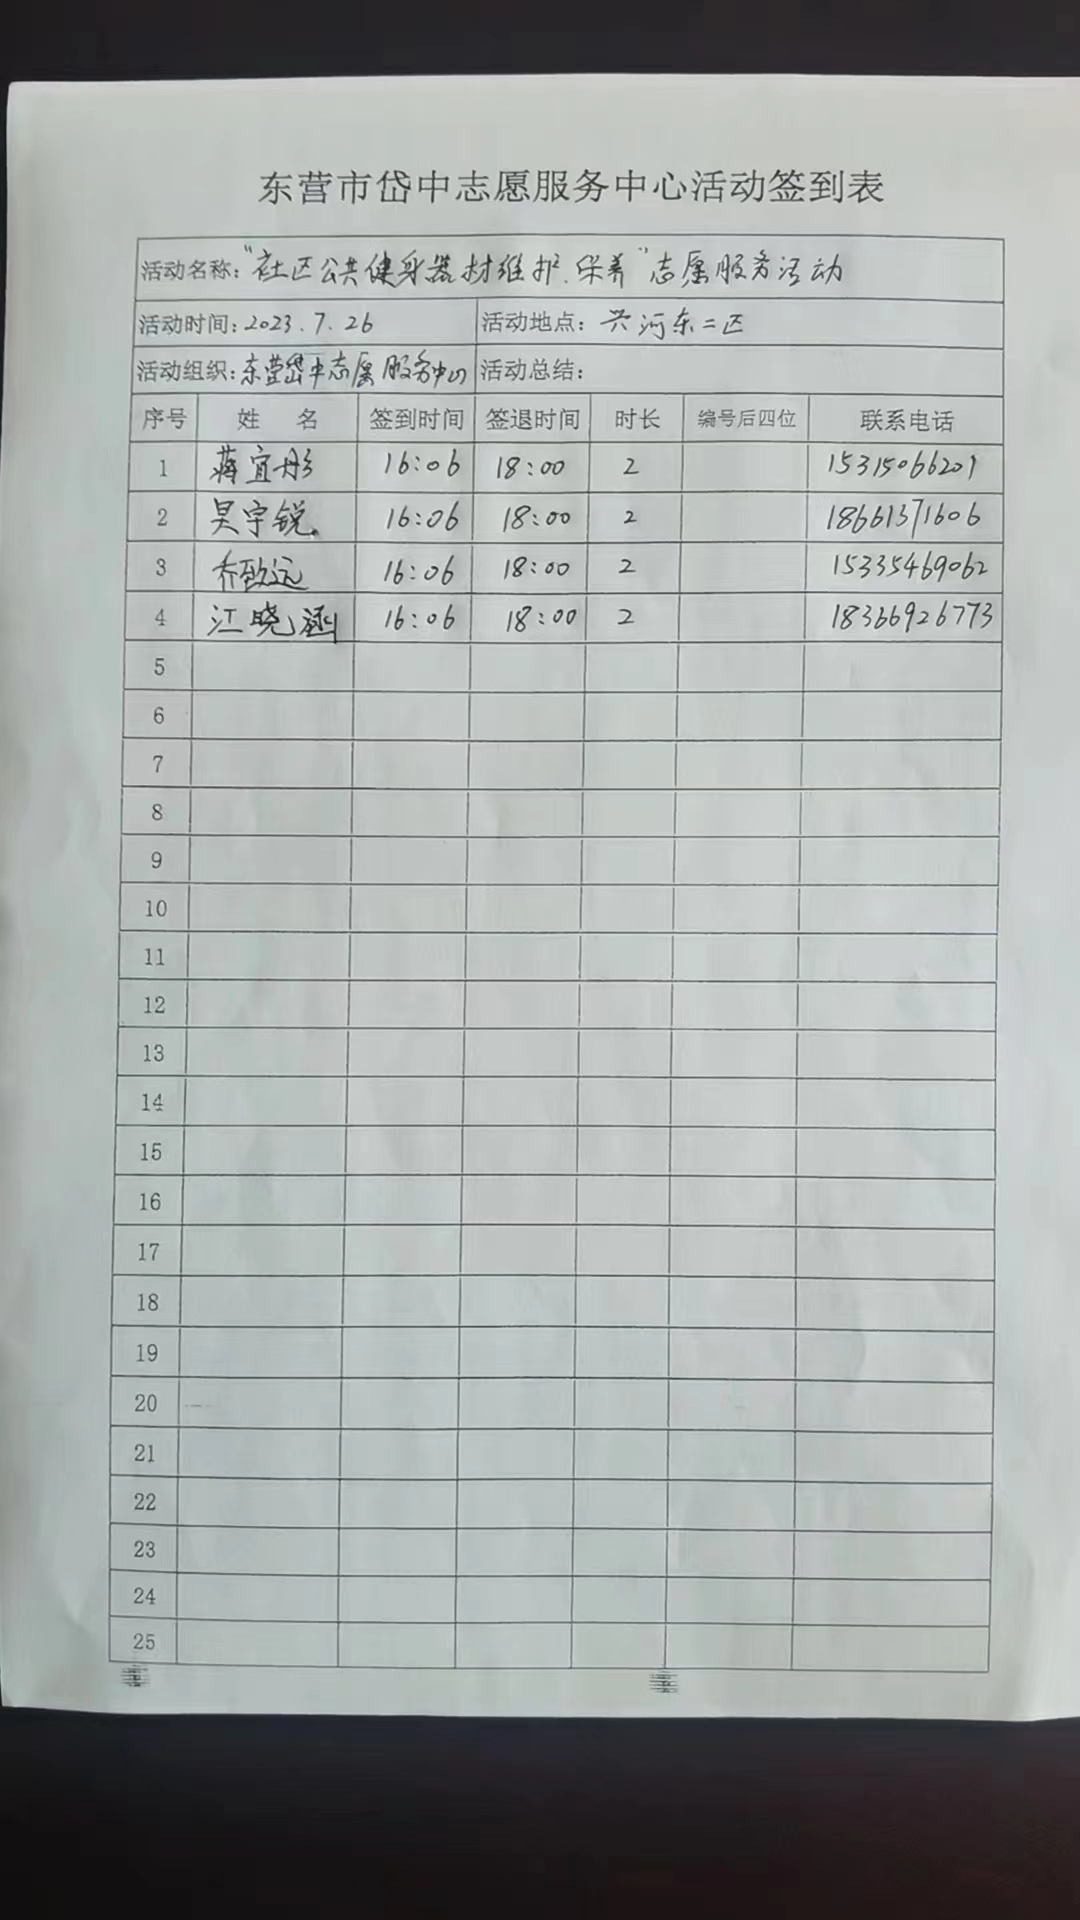 东营市岱中志愿服务中心活动签到表
活动名称："社区公共健身器材维护、保养"志愿服务活动
活动时间：2023.7.26 活动地点：兴河东二区
活动组织：东营岱中志愿服务中心 活动总结：
序号 姓 名 签到时间 签退时间 时长 编号后四位 联系电话
1 蒋宜彤 16:06 18:00 2 15315066201
2 吴宇锐 16:06 18:00 2 18661371606
3 乔致远 16:06 18:00 2 15335469062
4 江晓涵 16:06 18:00 2 18366926773
5
6
7
8
9
10
11
12
13
14
15
16
17
18
19
20
21
22
23
24
25